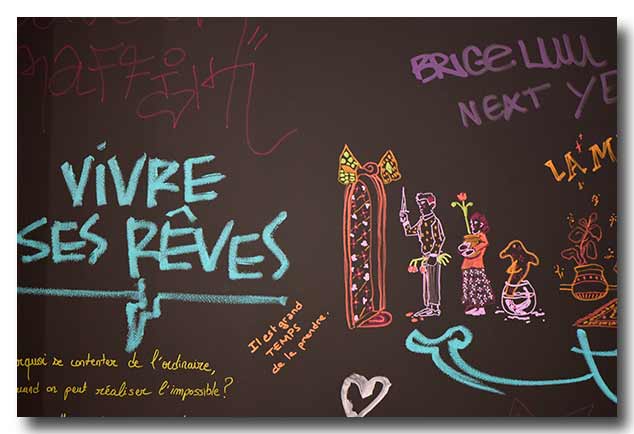 BRIGE LUUU
NEXT YE
LA M
VIVRE
SES RÊVES
Il est grand
TEMPS
de le prendre.
rquoi se contenter de l'ordinaire,
uand on peut réaliser l'impossible?